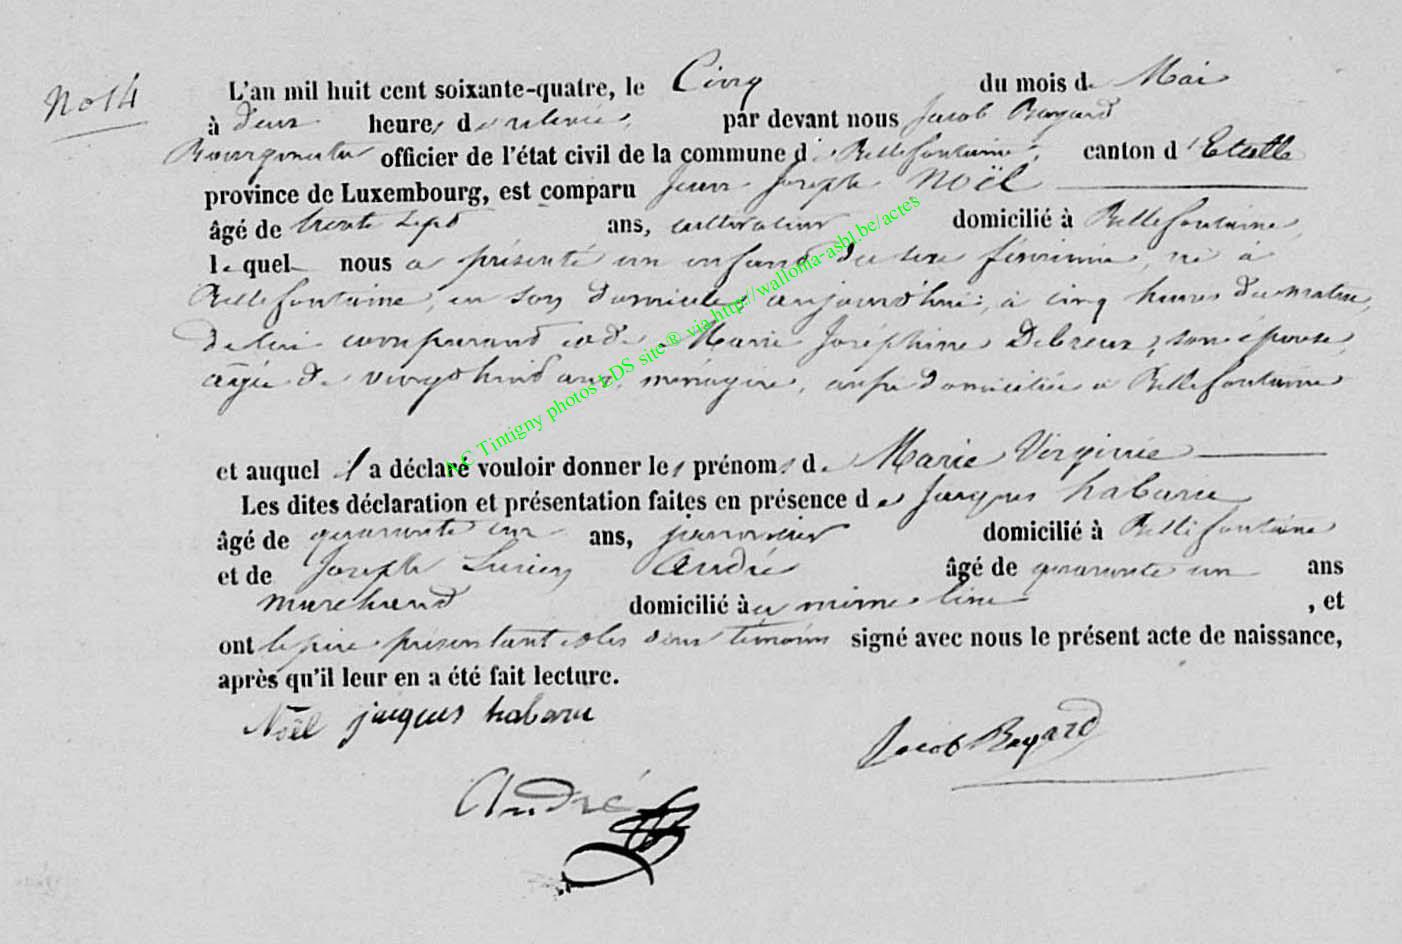 No 14
L'an mil huit cent soixante-quatre, le Cinq du mois de Mai
à deux heures de relevée, par devant nous Jacob Bayard
Bourgmestre officier de l'état civil de la commune de Bellefontaine, canton d'Etalle
province de Luxembourg, est comparu Jean Joseph Noël
âgé de trente sept ans, cultivateur domicilié à Bellefontaine,
lequel nous a présenté un enfant du sexe féminin, né à
Bellefontaine, en son domicile aujourd'hui, à cinq heures du matin,
de lui comparant et de Marie Joséphine Debreux, son épouse,
âgée de vingt huit ans, ménagère, aussi domiciliée à Bellefontaine
et auquel il a déclaré vouloir donner les prénoms de Marie Virginie
Les dites déclaration et présentation faites en présence de Jacques habaru
âgé de quarante un ans, domicilié à Bellefontaine
et de Joseph Lucien André âgé de quarante un ans
marchand domicilié à même lieu, et
ont le père présentant et les deux témoins signé avec nous le présent acte de naissance,
après qu'il leur en a été fait lecture.
Noël jacques habaru
Jacob Bayard
André
A.C Tintigny photos EDS site ® via http://wallonia-asbl.be/actes